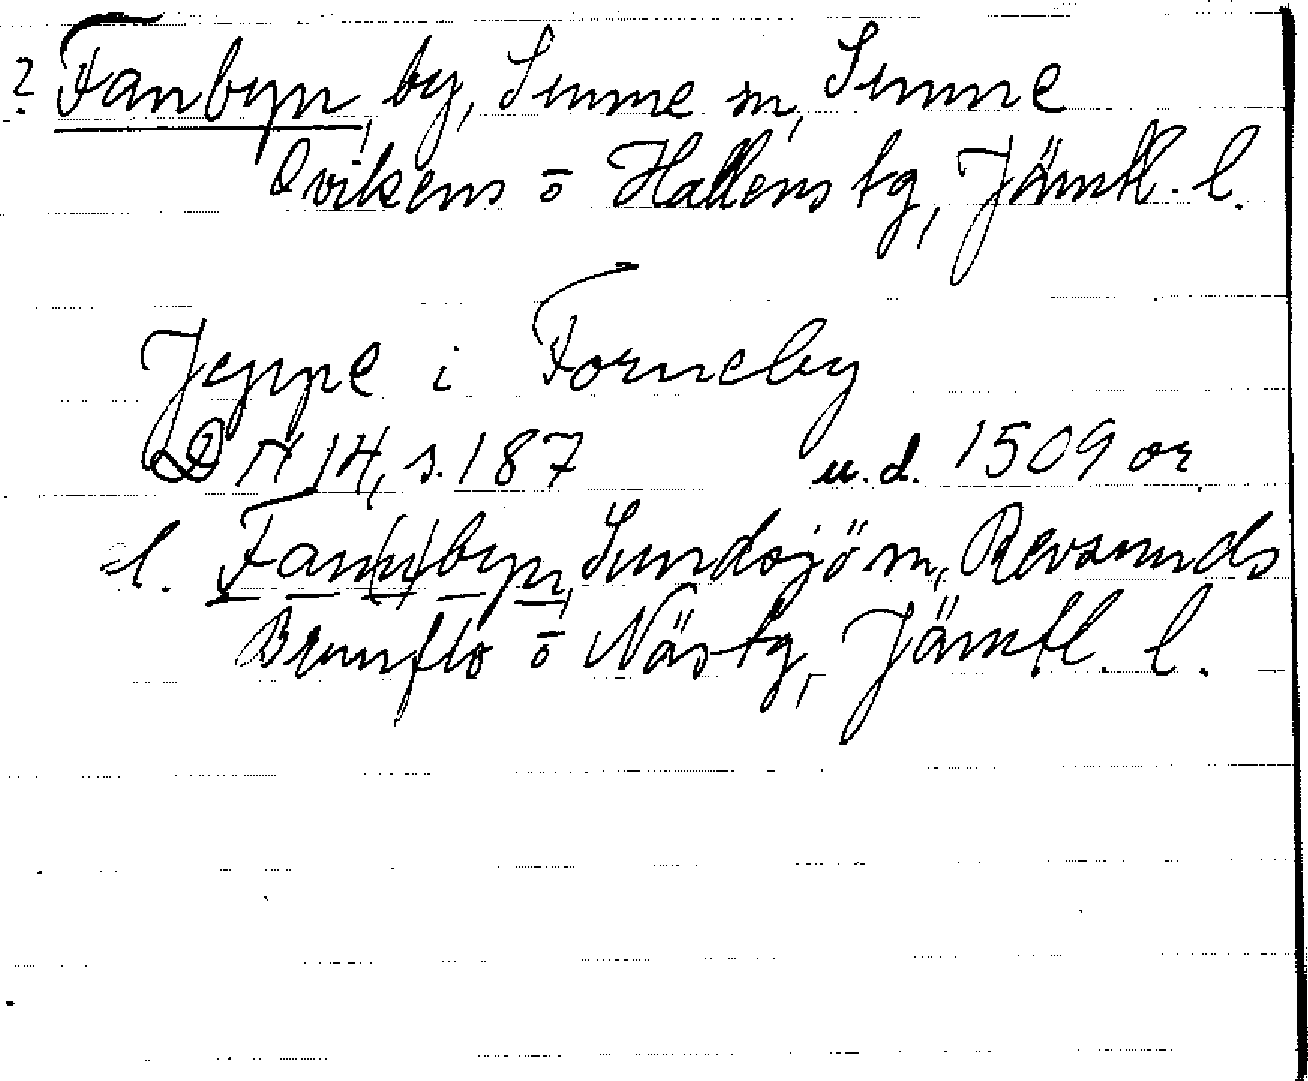 ? Fanbyn, by, Sunne sn, Sunne
Ovikens o Hallens tg, Jämtl. l.
Jeppe i Forneby
DN 14, s. 187 u.d. 1509 or
el. Fan(n)byn, Sundsjö sn, Revsunds
Brunflo o Näs tg, Jämtl. l.